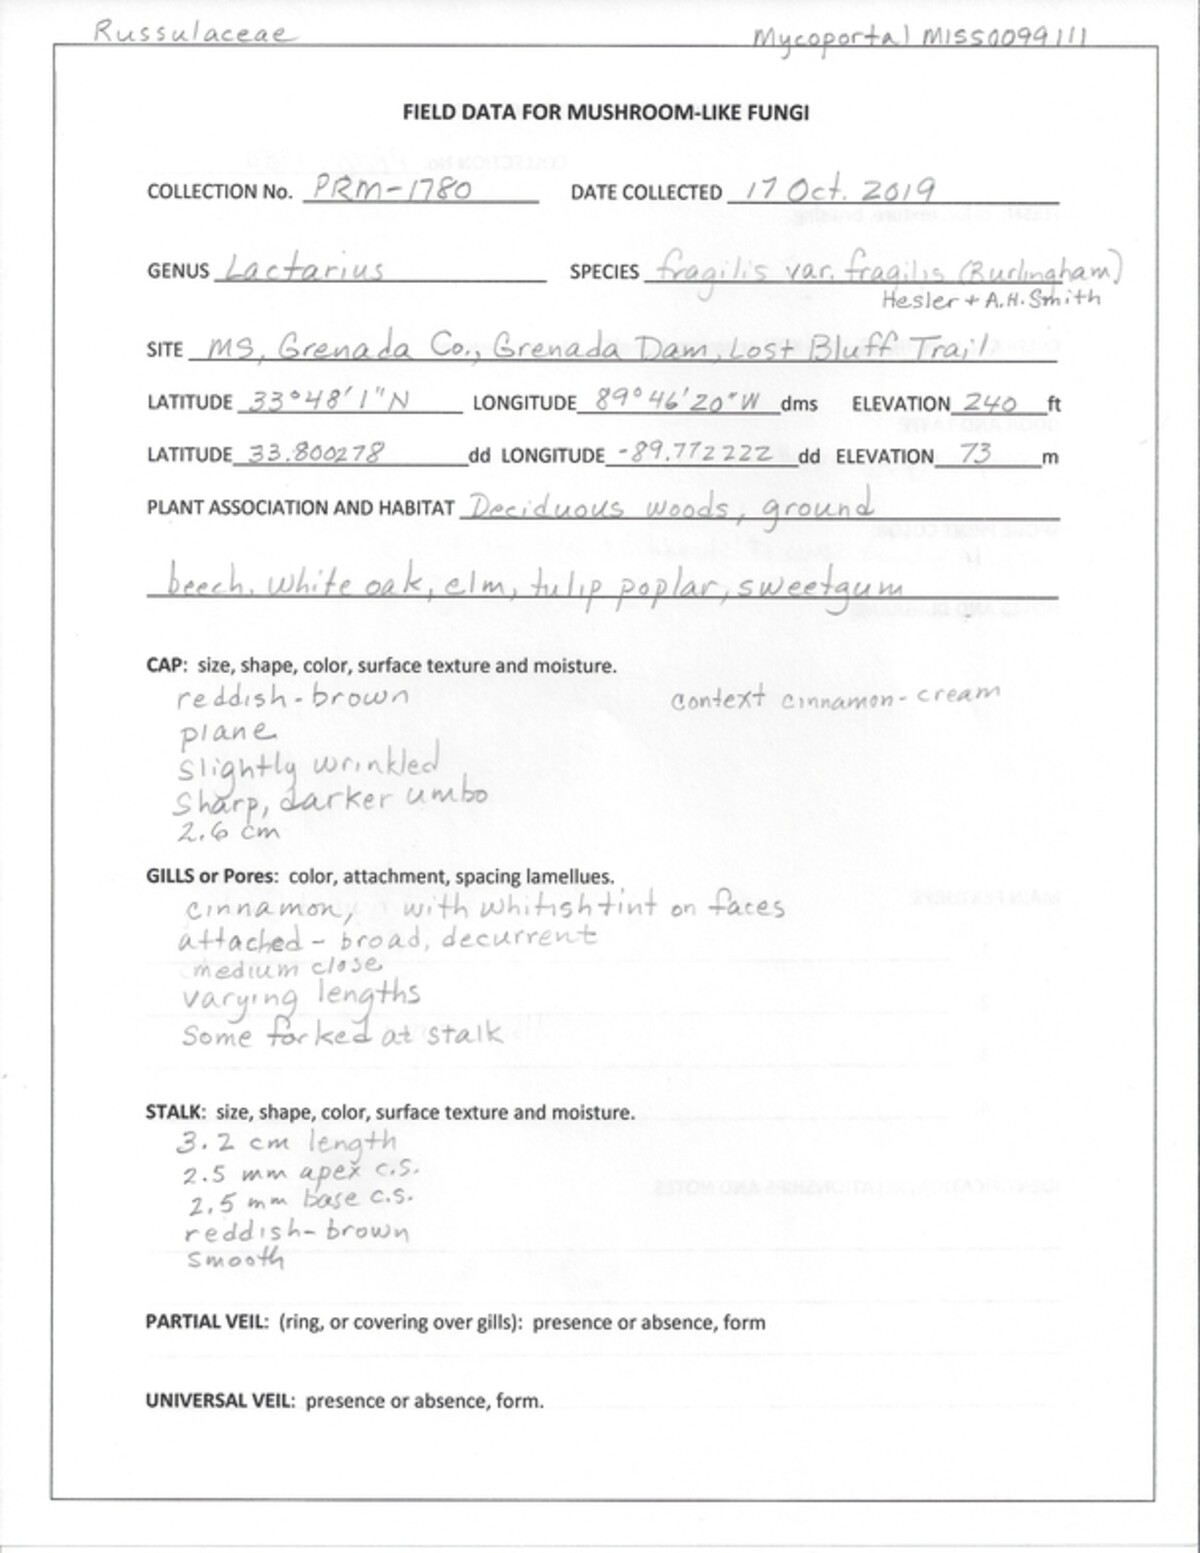 Russulaceae
Mycoportal MISS0099111
FIELD DATA FOR MUSHROOM-LIKE FUNGI
COLLECTION No. PRM-1780 DATE COLLECTED 17 Oct. 2019
GENUS Lactarius SPECIES fragilis var. fragilis (Burlingham)
Hesler + A.H. Smith
SITE MS, Grenada Co., Grenada Dam, Lost Bluff Trail
LATITUDE 33°48'1"N LONGITUDE 89°46'20"W dms ELEVATION 240 ft
LATITUDE 33.800278 dd LONGITUDE -89.772222 dd ELEVATION 73 m
PLANT ASSOCIATION AND HABITAT Deciduous woods, ground
beech, white oak, elm, tulip poplar, sweetgum
CAP: size, shape, color, surface texture and moisture.
reddish-brown context cinnamon-cream
plane
slightly wrinkled
Sharp, darker umbo
2.6 cm
GILLS or Pores: color, attachment, spacing lamellues.
cinnamon, with whitish tint on faces
attached - broad, decurrent
medium close
varying lengths
Some forked at stalk
STALK: size, shape, color, surface texture and moisture.
3.2 cm length
2.5 mm apex c.s.
2.5 mm base c.s.
reddish-brown
smooth
PARTIAL VEIL: (ring, or covering over gills): presence or absence, form
UNIVERSAL VEIL: presence or absence, form.